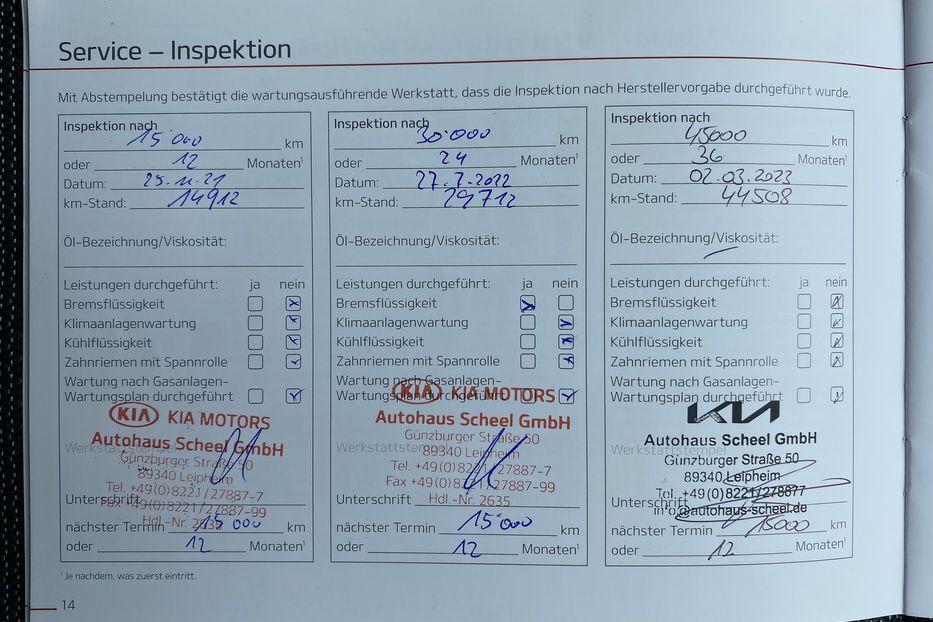 Service – Inspektion
Mit Abstempelung bestätigt die wartungsausführende Werkstatt, dass die Inspektion nach Herstellervorgabe durchgeführt wurde.
Inspektion nach
15'000 km
oder 12 Monaten¹
Datum: 25.11.21
km-Stand: 14912
Öl-Bezeichnung/Viskosität:
Leistungen durchgeführt: ja nein
Bremsflüssigkeit
Klimaanlagenwartung
Kühlflüssigkeit
Zahnriemen mit Spannrolle
Wartung nach Gasanlagen-
Wartungsplan durchgeführt
KIA KIA MOTORS
Autohaus Scheel GmbH
Werkstattstempel
Günzburger Straße 50
89340 Leipheim
Tel. +49(0)8221/27887-7
Unterschrift
Fax +49(0)8221/27887-99
Hdl.-Nr. 2635
nächster Termin 15'000 km
oder 12 Monaten¹
Inspektion nach
30'000 km
oder 24 Monaten¹
Datum: 27.7.2022
km-Stand: 29712
Öl-Bezeichnung/Viskosität:
Leistungen durchgeführt: ja nein
Bremsflüssigkeit
Klimaanlagenwartung
Kühlflüssigkeit
Zahnriemen mit Spannrolle
Wartung nach Gasanlagen-
Wartungsplan durchgeführt
KIA KIA MOTORS
Autohaus Scheel GmbH
Günzburger Straße 50
Werkstattstempel
89340 Leipheim
Tel. +49(0)8221/27887-7
Fax +49(0)8221/27887-99
Unterschrift
Hdl.-Nr. 2635
nächster Termin 15'000 km
oder 12 Monaten¹
Inspektion nach
45000 km
oder 36 Monaten¹
Datum: 02.03.2023
km-Stand: 44508
Öl-Bezeichnung/Viskosität:
Leistungen durchgeführt: ja nein
Bremsflüssigkeit
Klimaanlagenwartung
Kühlflüssigkeit
Zahnriemen mit Spannrolle
Wartung nach Gasanlagen-
Wartungsplan durchgeführt
KIA
Autohaus Scheel GmbH
Werkstattstempel
Günzburger Straße 50
89340 Leipheim
Tel. +49(0)8221/278877
Unterschrift
info@autohaus-scheel.de
nächster Termin 15000 km
oder 12 Monaten¹
¹ Je nachdem, was zuerst eintritt.
14